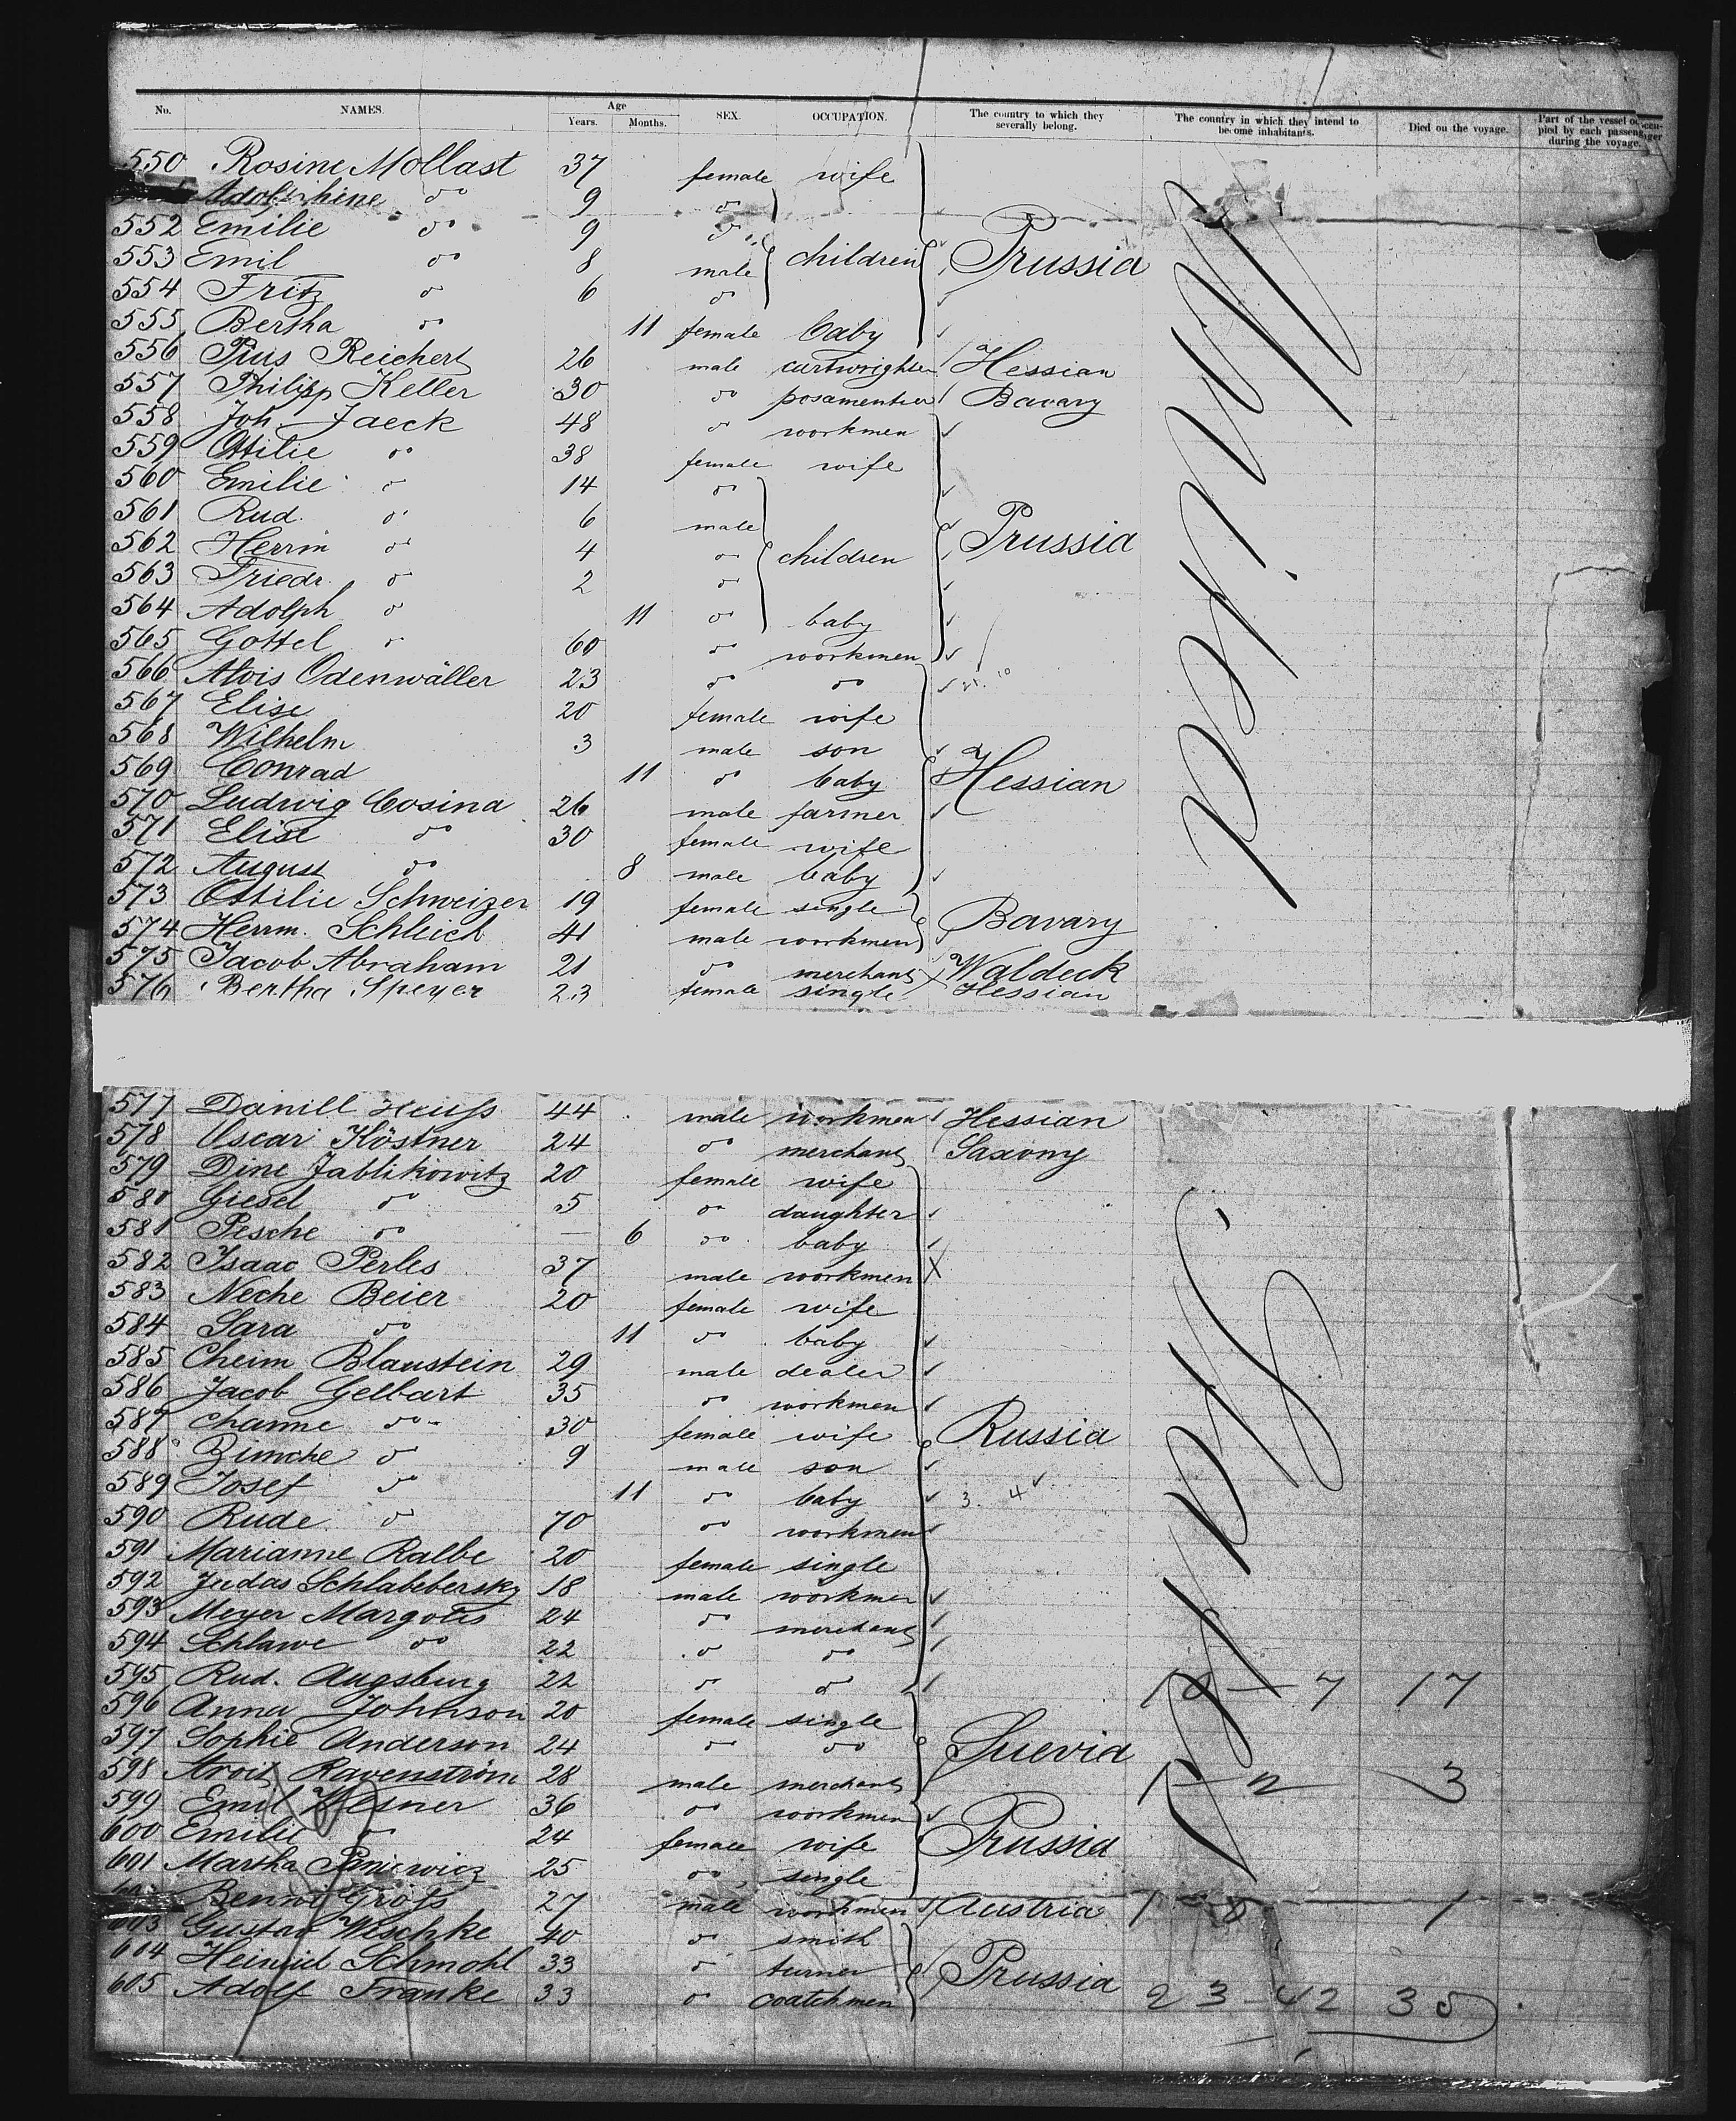 No. NAMES. Age Years. Months. SEX. OCCUPATION. The country to which they severally belong. The country in which they intend to become inhabitants. Died on the voyage. Part of the vessel occupied by each passenger during the voyage.
550 Rosine Mollast 37 female wife
Adolphine do 9 do
552 Emilie do 9 do
553 Emil do 8 male children Prussia
554 Fritz do 6 do
555 Bertha do 11 female baby
556 Pius Reichert 26 male cartwrighter Hessian
557 Philipp Keller 30 do posamentier Bavary
558 Joh. Jaeck 48 do workmen
559 Ottilie do 38 female wife
560 Emilie do 14 do
561 Rud. do 6 male Prussia
562 Herrm do 4 do children
563 Friedr. do 2 do
564 Adolph do 11 do baby
565 Gottel do 60 do workmen
566 Alois Odenwäller 23 do do
567 Elise 20 female wife
568 Wilhelm 3 male son
569 Conrad 11 do baby Hessian
570 Ludwig Cosina 26 male farmer
571 Elise do 30 female wife
572 August do 8 male baby
573 Ottilie Schweizer 19 female single Bavary
574 Herrm. Schleich 41 male workmen
575 Jacob Abraham 21 do merchant Waldeck
576 Bertha Speyer 23 female single Hessian
577 Daniell Heuss 44 male workmen Hessian
578 Oscar Köstner 24 do merchant Saxony
579 Dine Jablikowitz 20 female wife
580 Giesel do 5 do daughter
581 Pesche do — 6 do baby
582 Isaac Perles 37 male workmen
583 Neche Beier 20 female wife
584 Sara do 11 do baby
585 Cheim Blaustein 29 male dealer
586 Jacob Gelbart 35 do workmen
587 Channe do 30 female wife Russia
588 Zimche do 9 male son
589 Josef do 11 do baby 3. 4
590 Rude do 70 do workmen
591 Marianne Kalbe 20 female single
592 Judas Schlabebersky 18 male workmen
593 Meyer Margolis 24 do merchant
594 Schlawe do 22 do do
595 Rud. Augsburg 22 do do 7 17
596 Anna Johnson 20 female single
597 Sophie Anderson 24 do do Suevia
598 Ravenström 28 male merchant 1 — 2 3
599 Emil Wesner 36 do workmen
600 Emilie do 24 female wife Prussia
601 Martha Paniewicz 25 do single
Benno Gross 27 male workmen Austria 1
603 Gustav Wischke 40 do smith
604 Heinrich Schmohl 33 do turner Prussia
605 Adolf Franke 33 do coatchmen 23 42 35